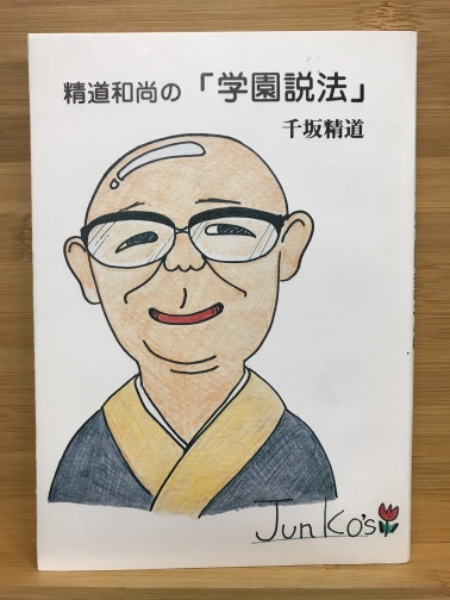 精道和尚の「学園説法」
千坂精道
Junko's